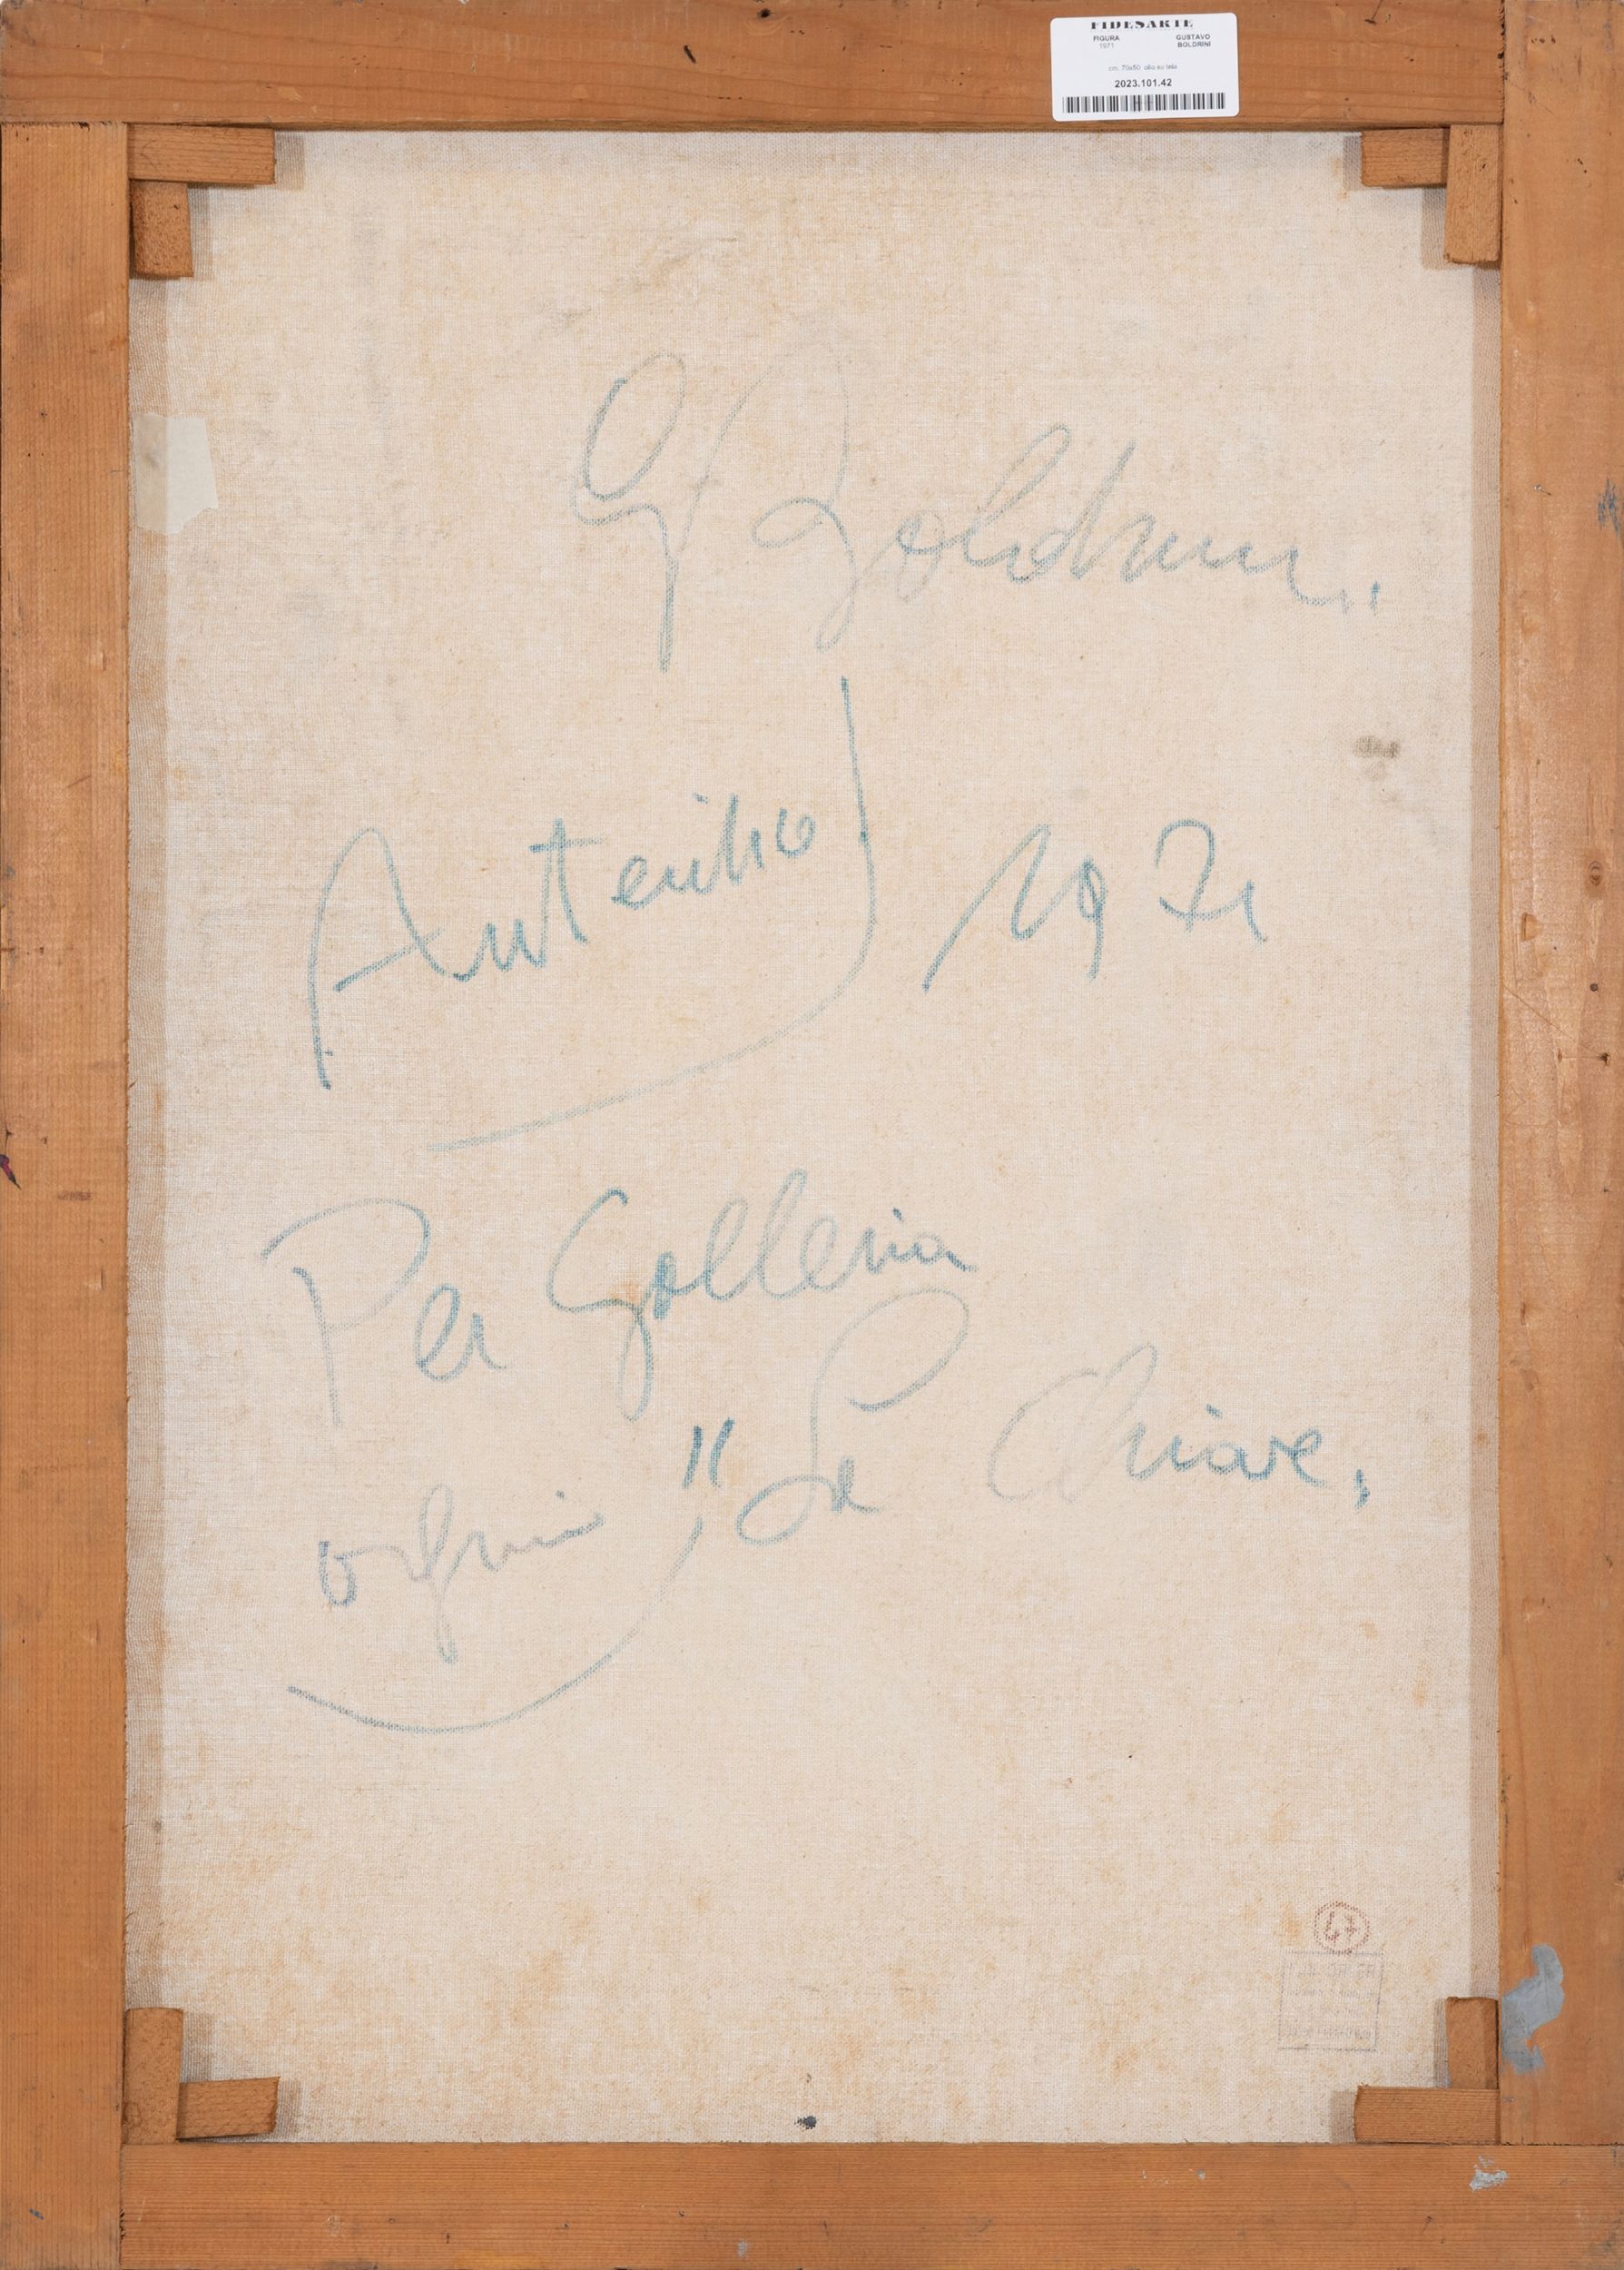 FIDESARTE
FIGURA GUSTAVO
1971 BOLDRINI
cm. 70x50 olio su tela
2023.101.42
G Boldrini
Autentico 1971
Per Galleria
"La Chiave,
47